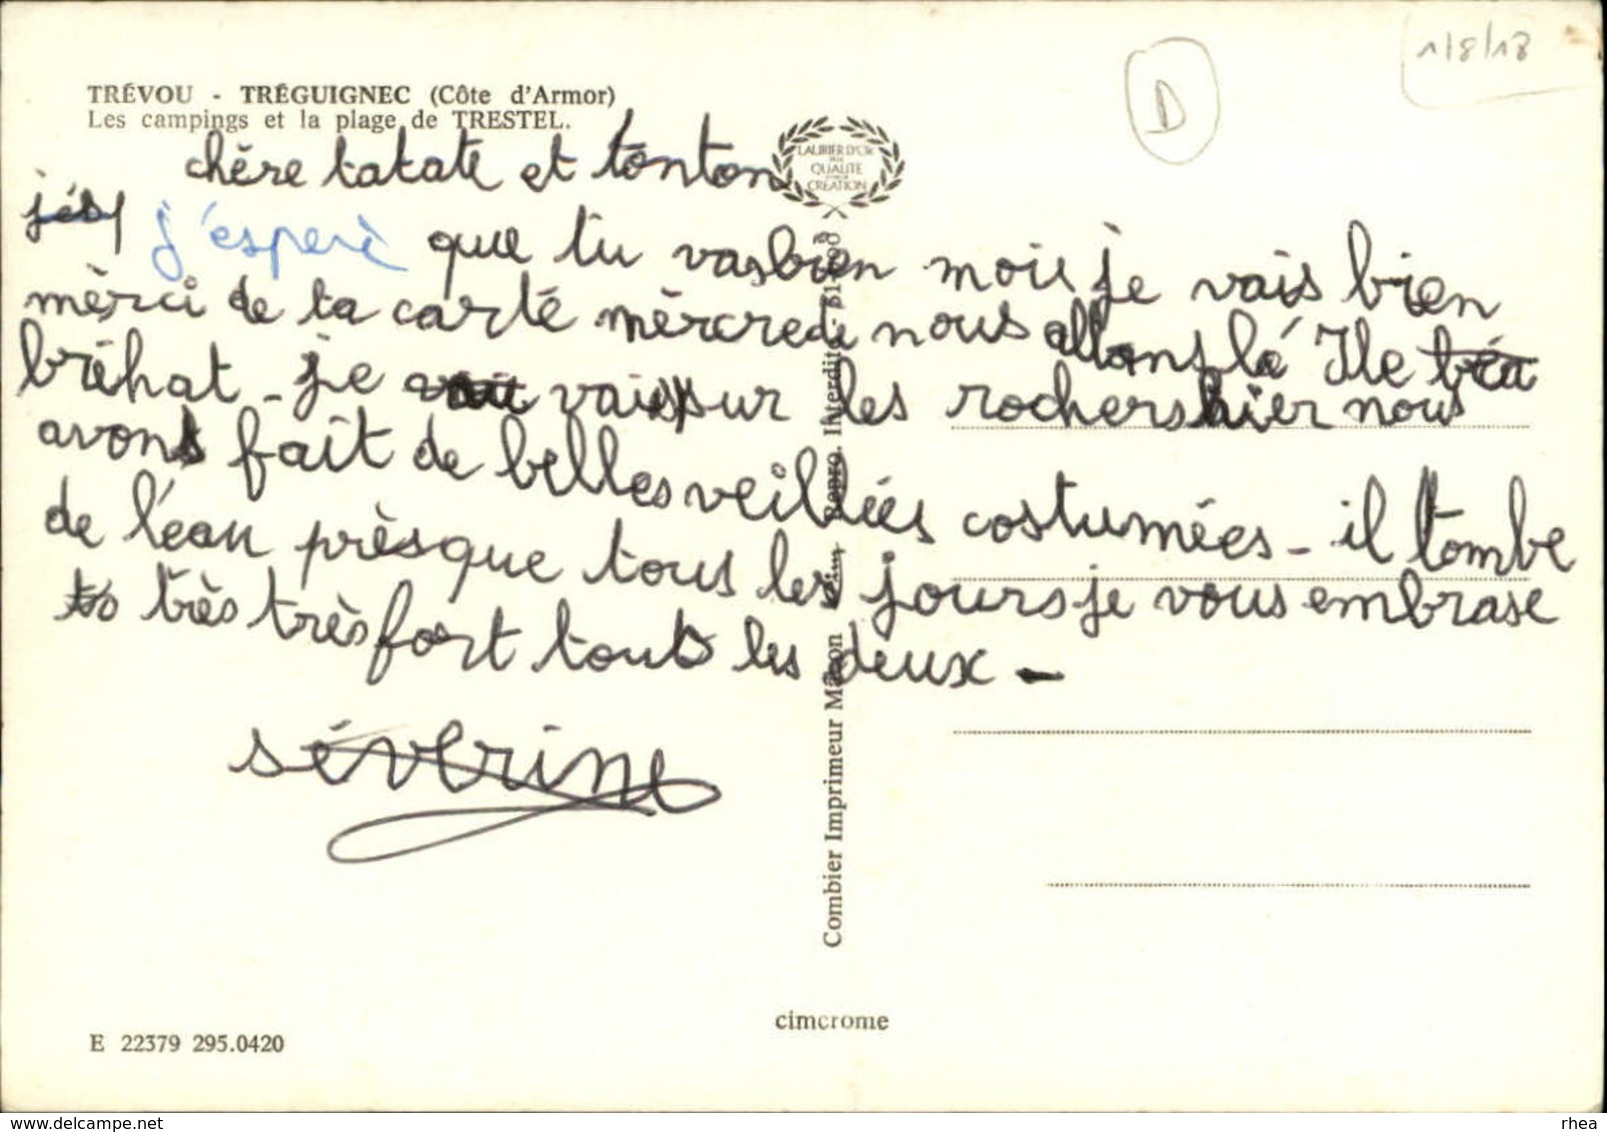 1/8/18
D
TRÉVOU - TRÉGUIGNEC (Côte d'Armor)
Les campings et la plage de TRESTEL.
LAURIER D'OR
QUALITÉ
CRÉATION
chère tatate et tonton
j'esperè que tu vas bien moi je vais bien
mèrci de ta carté mèrcredi nous allons lé Ile
bréhat - je vais sur les rochers hier nous
avons fait de belles veillées costumées - il tombe
de l'eau prèsque tous les jours je vous embrase
très très fort tout les deux -
séverine
Combier Imprimeur Mâcon
Repro. Interdite
cimcrome
E 22379 295.0420
delcampe.net
rhea